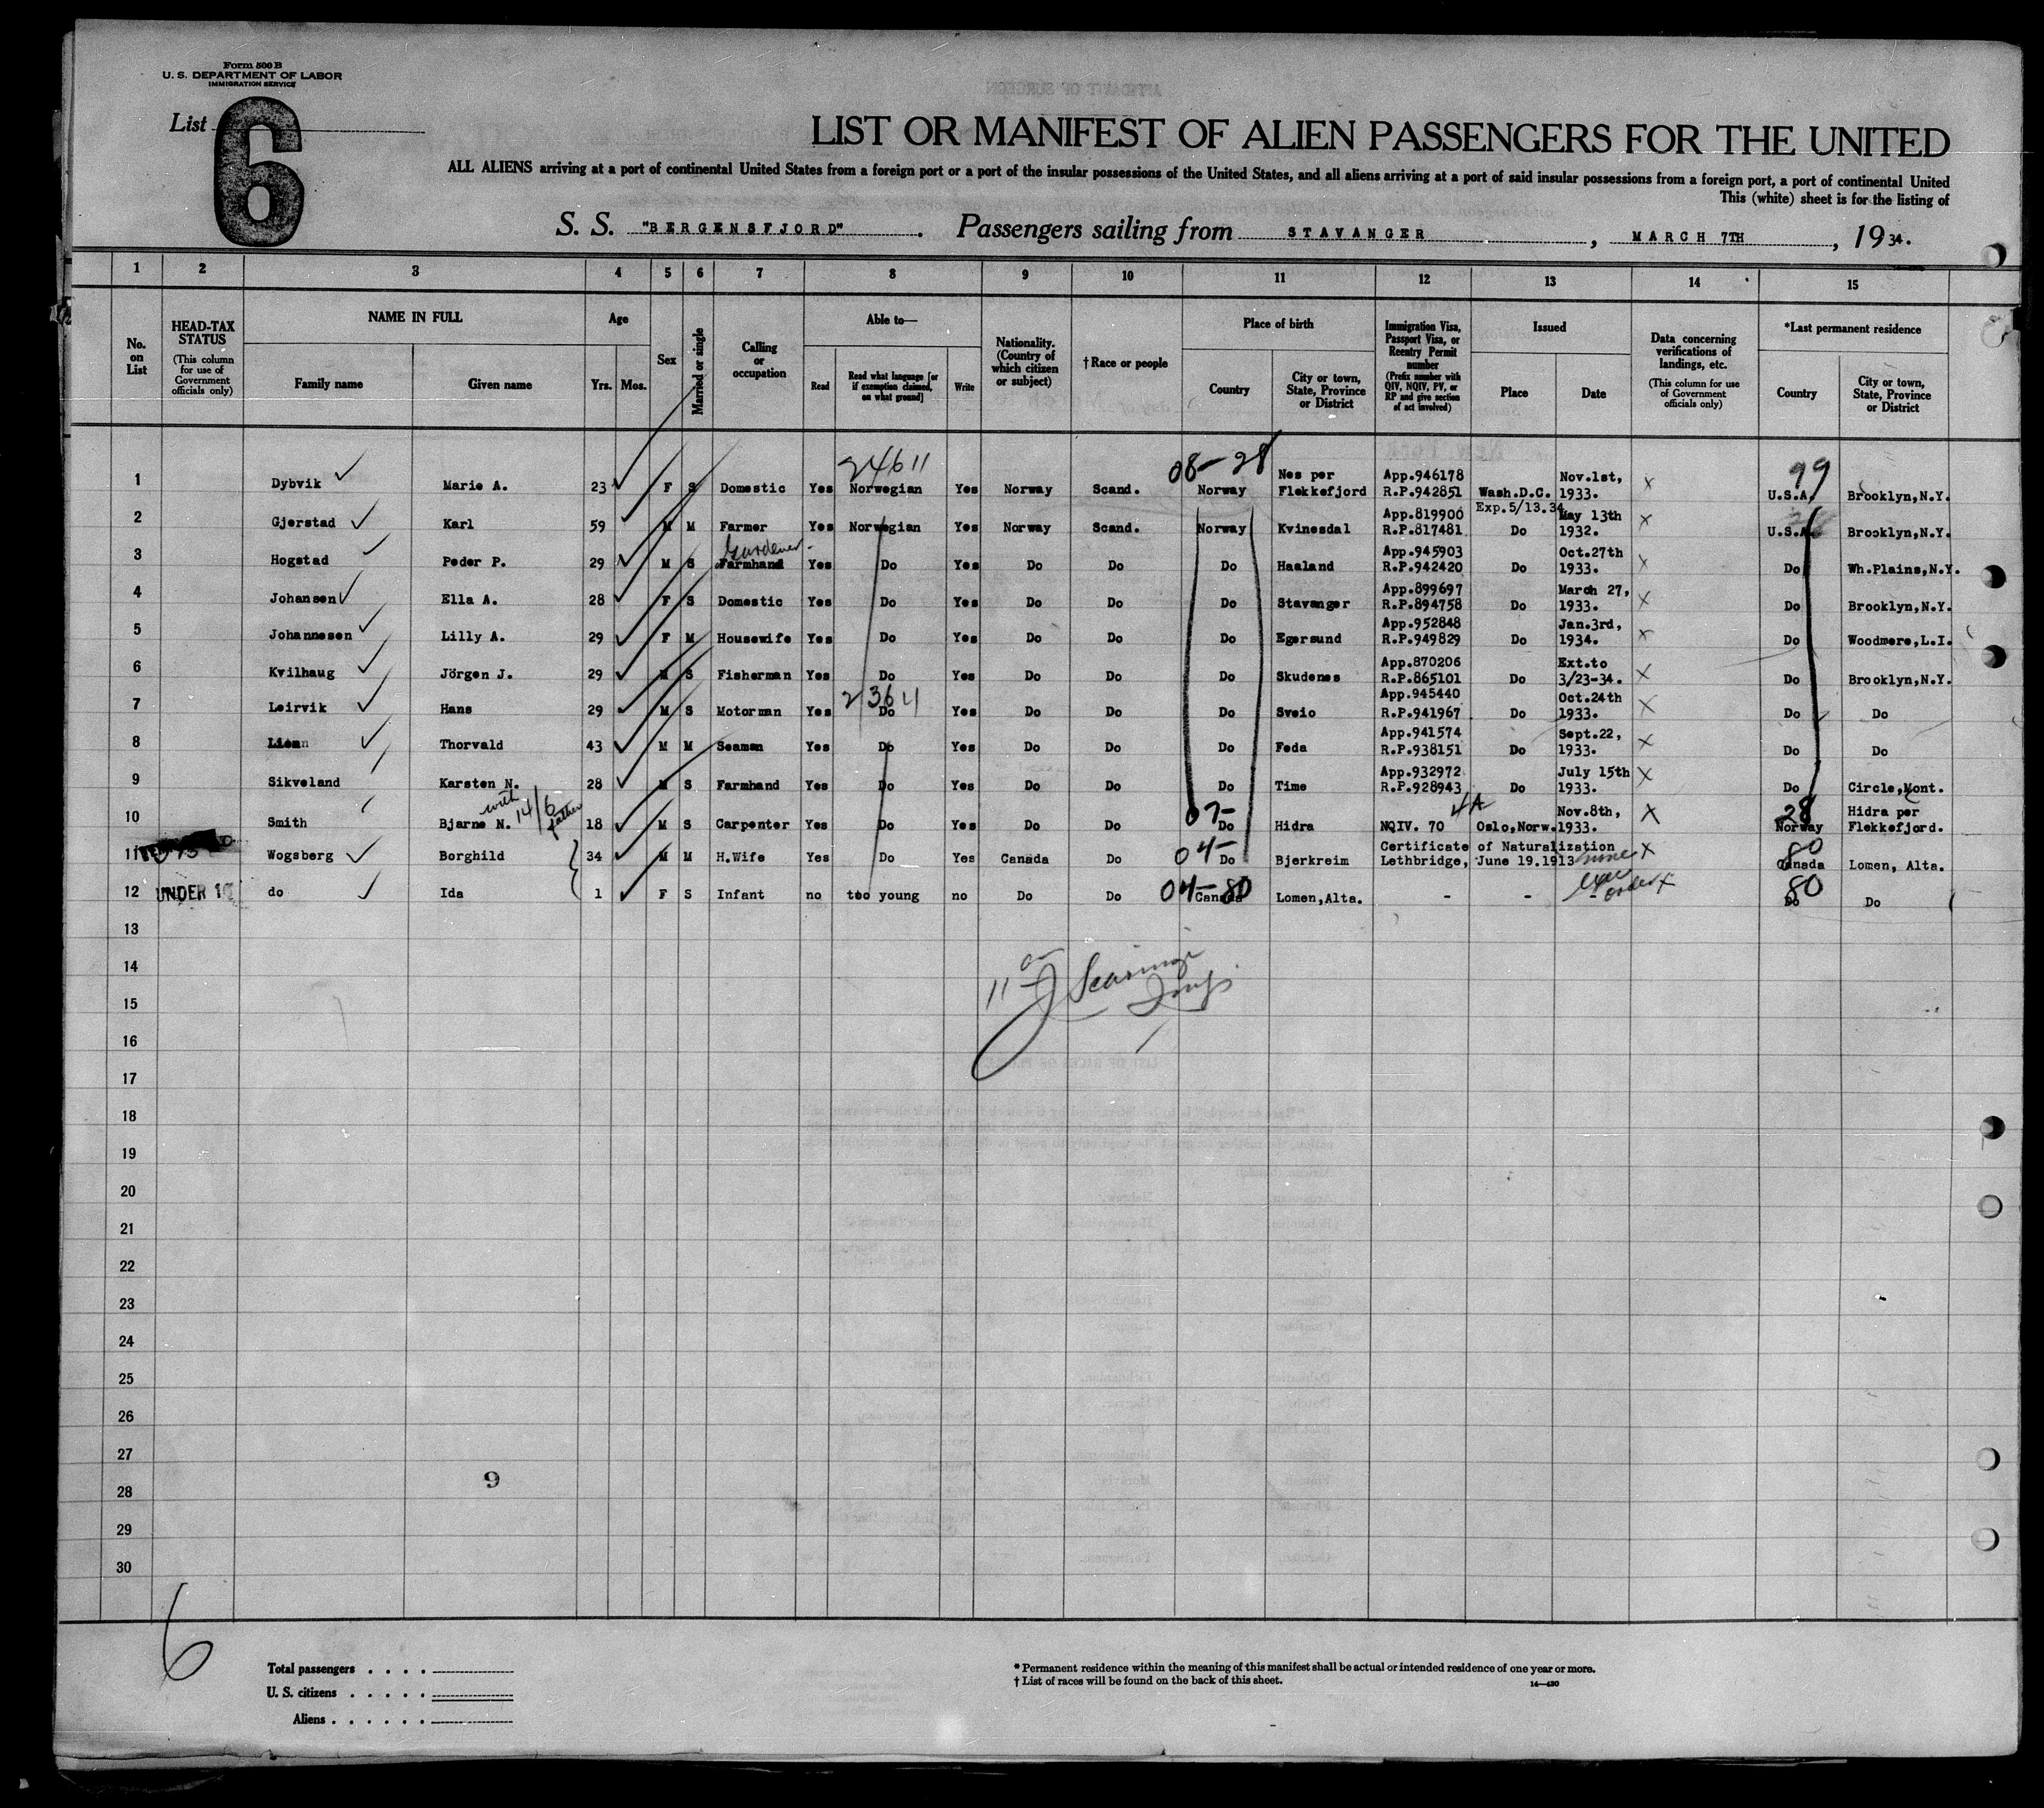 Form 500 B
U. S. DEPARTMENT OF LABOR
IMMIGRATION SERVICE
List 6
LIST OR MANIFEST OF ALIEN PASSENGERS FOR THE UNITED
ALL ALIENS arriving at a port of continental United States from a foreign port or a port of the insular possessions of the United States, and all aliens arriving at a port of said insular possessions from a foreign port, a port of continental United
This (white) sheet is for the listing of
S. S. "BERGENSFJORD". Passengers sailing from STAVANGER, MARCH 7TH, 1934.
1 2 3 4 5 6 7 8 9 10 11 12 13 14 15
No. on List
HEAD-TAX STATUS
(This column for use of Government officials only)
NAME IN FULL
Family name Given name
Age
Yrs. Mos.
Sex
Married or single
Calling or occupation
Able to—
Read
Read what language [or if exemption claimed, on what ground]
Write
Nationality. (Country of which citizen or subject)
† Race or people
Place of birth
Country
City or town, State, Province or District
Immigration Visa, Passport Visa, or Reentry Permit number
(Prefix number with QIV, NQIV, PV, or RP and give section of act involved)
Issued
Place Date
Data concerning verifications of landings, etc.
(This column for use of Government officials only)
*Last permanent residence
Country
City or town, State, Province or District
24611 08-28 99
1 Dybvik Marie A. 23 F S Domestic Yes Norwegian Yes Norway Scand. Norway Nes per Flekkefjord App.946178 R.P.942851 Wash.D.C. Nov.1st, 1933. U.S.A. Brooklyn,N.Y.
2 Gjerstad Karl 59 M M Farmer Yes Norwegian Yes Norway Scand. Norway Kvinesdal App.819900 R.P.817481 Exp.5/13.34 Do May 13th 1932. U.S.A. Brooklyn,N.Y.
Gardener
3 Hogstad Peder P. 29 M S Farmhand Yes Do Yes Do Do Do Haaland App.945903 R.P.942420 Do Oct.27th 1933. Do Wh.Plains,N.Y.
4 Johansen Ella A. 28 F S Domestic Yes Do Yes Do Do Do Stavanger App.899697 R.P.894758 Do March 27, 1933. Do Brooklyn,N.Y.
5 Johannesen Lilly A. 29 F M Housewife Yes Do Yes Do Do Do Egersund App.952848 R.P.949829 Do Jan.3rd, 1934. Do Woodmere,L.I.
6 Kvilhaug Jörgen J. 29 M S Fisherman Yes Do Yes Do Do Do Skudenes App.870206 R.P.865101 Do Ext.to 3/23-34. Do Brooklyn,N.Y.
2364
7 Leirvik Hans 29 M S Motorman Yes Do Yes Do Do Do Sveio App.945440 R.P.941967 Do Oct.24th 1933. Do Do
8 Thorvald 43 M M Seaman Yes Do Yes Do Do Do Feda App.941574 R.P.938151 Do Sept.22, 1933. Do Do
9 Sikveland Karsten N. 28 M S Farmhand Yes Do Yes Do Do Do Time App.932972 R.P.928943 Do July 15th 1933. Do Circle,Mont.
with father 14/6 07- 4A 28
10 Smith Bjarne N. 18 M S Carpenter Yes Do Yes Do Do Do Hidra NQIV. 70 Oslo,Norw. Nov.8th, 1933. Norway Hidra per Flekkefjord.
04- none 80
11 Wogsberg Borghild 34 M M H.Wife Yes Do Yes Canada Do Do Bjerkreim Certificate of Naturalization Lethbridge, June 19.1913 Canada Lomen, Alta.
UNDER 16 04-80 Exec order 80
12 do Ida 1 F S Infant no too young no Do Do Canada Lomen,Alta. - - - Do Do
13
14
15
16
17
18
19
20
21
22
23
24
25
26
27
28
29
30
9
6
Total passengers
U. S. citizens
Aliens
* Permanent residence within the meaning of this manifest shall be actual or intended residence of one year or more.
† List of races will be found on the back of this sheet.
14—430